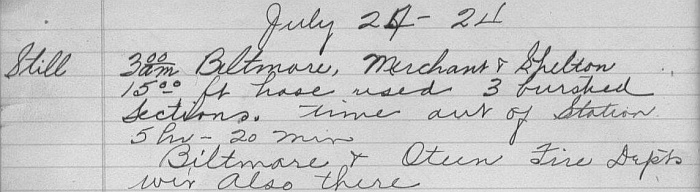 July 21 - 24
Still 3⁰⁰ am Biltmore, Merchant & Shelton
15⁰⁰ ft hose used 3 bursted
Sections. time out of Station
5 hr - 20 min
Biltmore & Oteen Fire Depts
wir also there